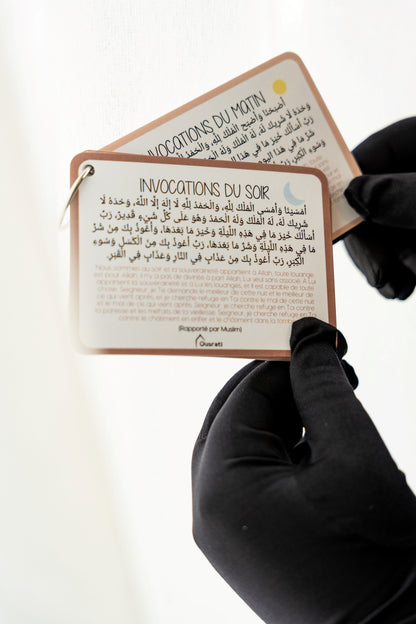 INVOCATIONS DU MATIN
INVOCATIONS DU SOIR
أَمْسَيْنَا وَأَمْسَى الْمُلْكُ لِلَّهِ، وَالْحَمْدُ لِلَّهِ لَا إِلَهَ إِلَّا اللَّهُ، وَحْدَهُ لَا
شَرِيكَ لَهُ، لَهُ الْمُلْكُ وَلَهُ الْحَمْدُ وَهُوَ عَلَى كُلِّ شَيْءٍ قَدِيرٌ، رَبِّ
أَسْأَلُكَ خَيْرَ مَا فِي هَذِهِ اللَّيْلَةِ وَخَيْرَ مَا بَعْدَهَا، وَأَعُوذُ بِكَ مِنْ شَرِّ
مَا فِي هَذِهِ اللَّيْلَةِ وَشَرِّ مَا بَعْدَهَا، رَبِّ أَعُوذُ بِكَ مِنَ الْكَسَلِ وَسُوءِ
الْكِبَرِ، رَبِّ أَعُوذُ بِكَ مِنْ عَذَابٍ فِي النَّارِ وَعَذَابٍ فِي الْقَبْرِ.
"Nous sommes au soir et la souveraineté appartient à Allah, toute louange
est pour Allah. Il n'y a pas de divinité à part Allah, Lui seul sans associé. A Lui
appartient la souveraineté et à Lui les louanges, et Il est capable de toute
chose. Seigneur, je Te demande, le meilleur de cette nuit et le meilleur de
ce qui vient après, et je cherche refuge en Toi contre le mal de cette nuit
et le mal de ce qui vient après. Seigneur, je cherche refuge en Toi contre
la paresse et les méfaits de la vieillesse. Seigneur, je cherche refuge en Toi
contre le châtiment en enfer et le châtiment dans la
(Rapporté par Muslim)
Ousrati